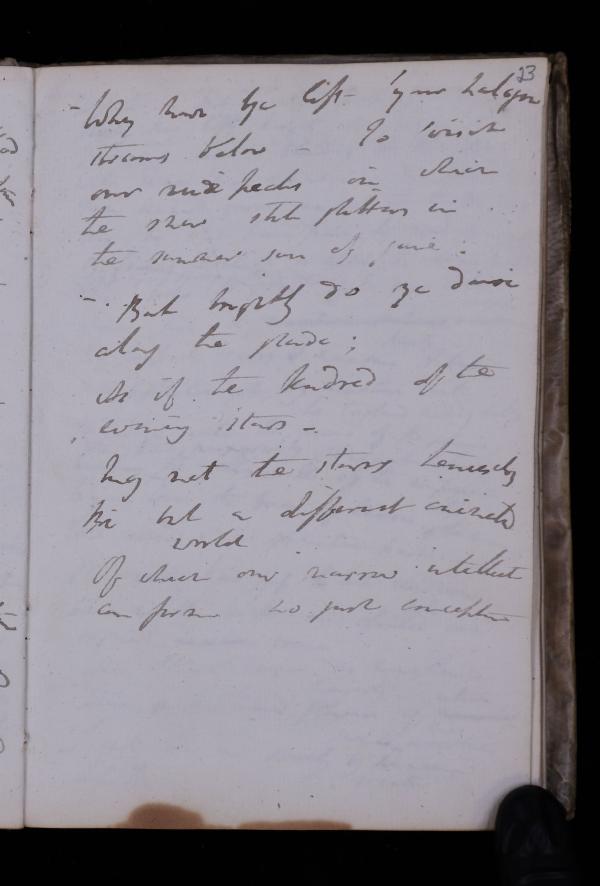 23
- Why have ye left your halcyon
streams below - To visit
our rude peaks on which
the snow still glitters in
the summer sun of june :
- But brightly do ye dance
along the glade ;
As if the kindred of the
evening stars -
May not the stars themselves
Be but a different animate
world
Of which our narrow intellect
can form no just conception